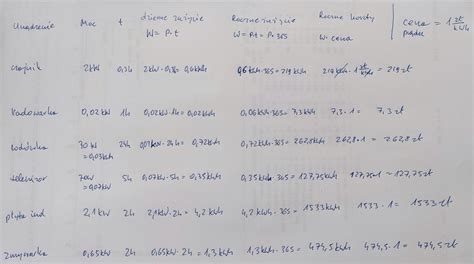 Urządzenie Moc t dzienne zużycie W=P·t Roczne zużycie W=P·t=P·365 Roczne koszty W·cena cena prądu = 1 zł/kWh
czajnik 2kW 0,3h 2kW·0,3h=0,6kWh 0,6kWh·365=219kWh 219kWh·1zł/kWh=219zł
ładowarka 0,02kW 1h 0,02kW·1h=0,02kWh 0,06kWh·365=7,3kWh 7,3·1= 7,3zł
lodówka 30W 24h 0,03kW·24h=0,72kWh 0,72kWh·365=262,8kWh 262,8·1=262,8zł
=0,03kWh
telewizor 70W 5h 0,07kW·5h=0,35kWh 0,35kWh·365=127,75kWh 127,75·1=127,75zł
=0,07kW
płyta ind 2,1kW 2h 2,1kW·2h=4,2kWh 4,2kWh·365=1533kWh 1533·1=1533zł
zmywarka 0,65kW 2h 0,65kW·2h=1,3kWh 1,3kWh·365=474,5kWh 474,5·1=474,5zł